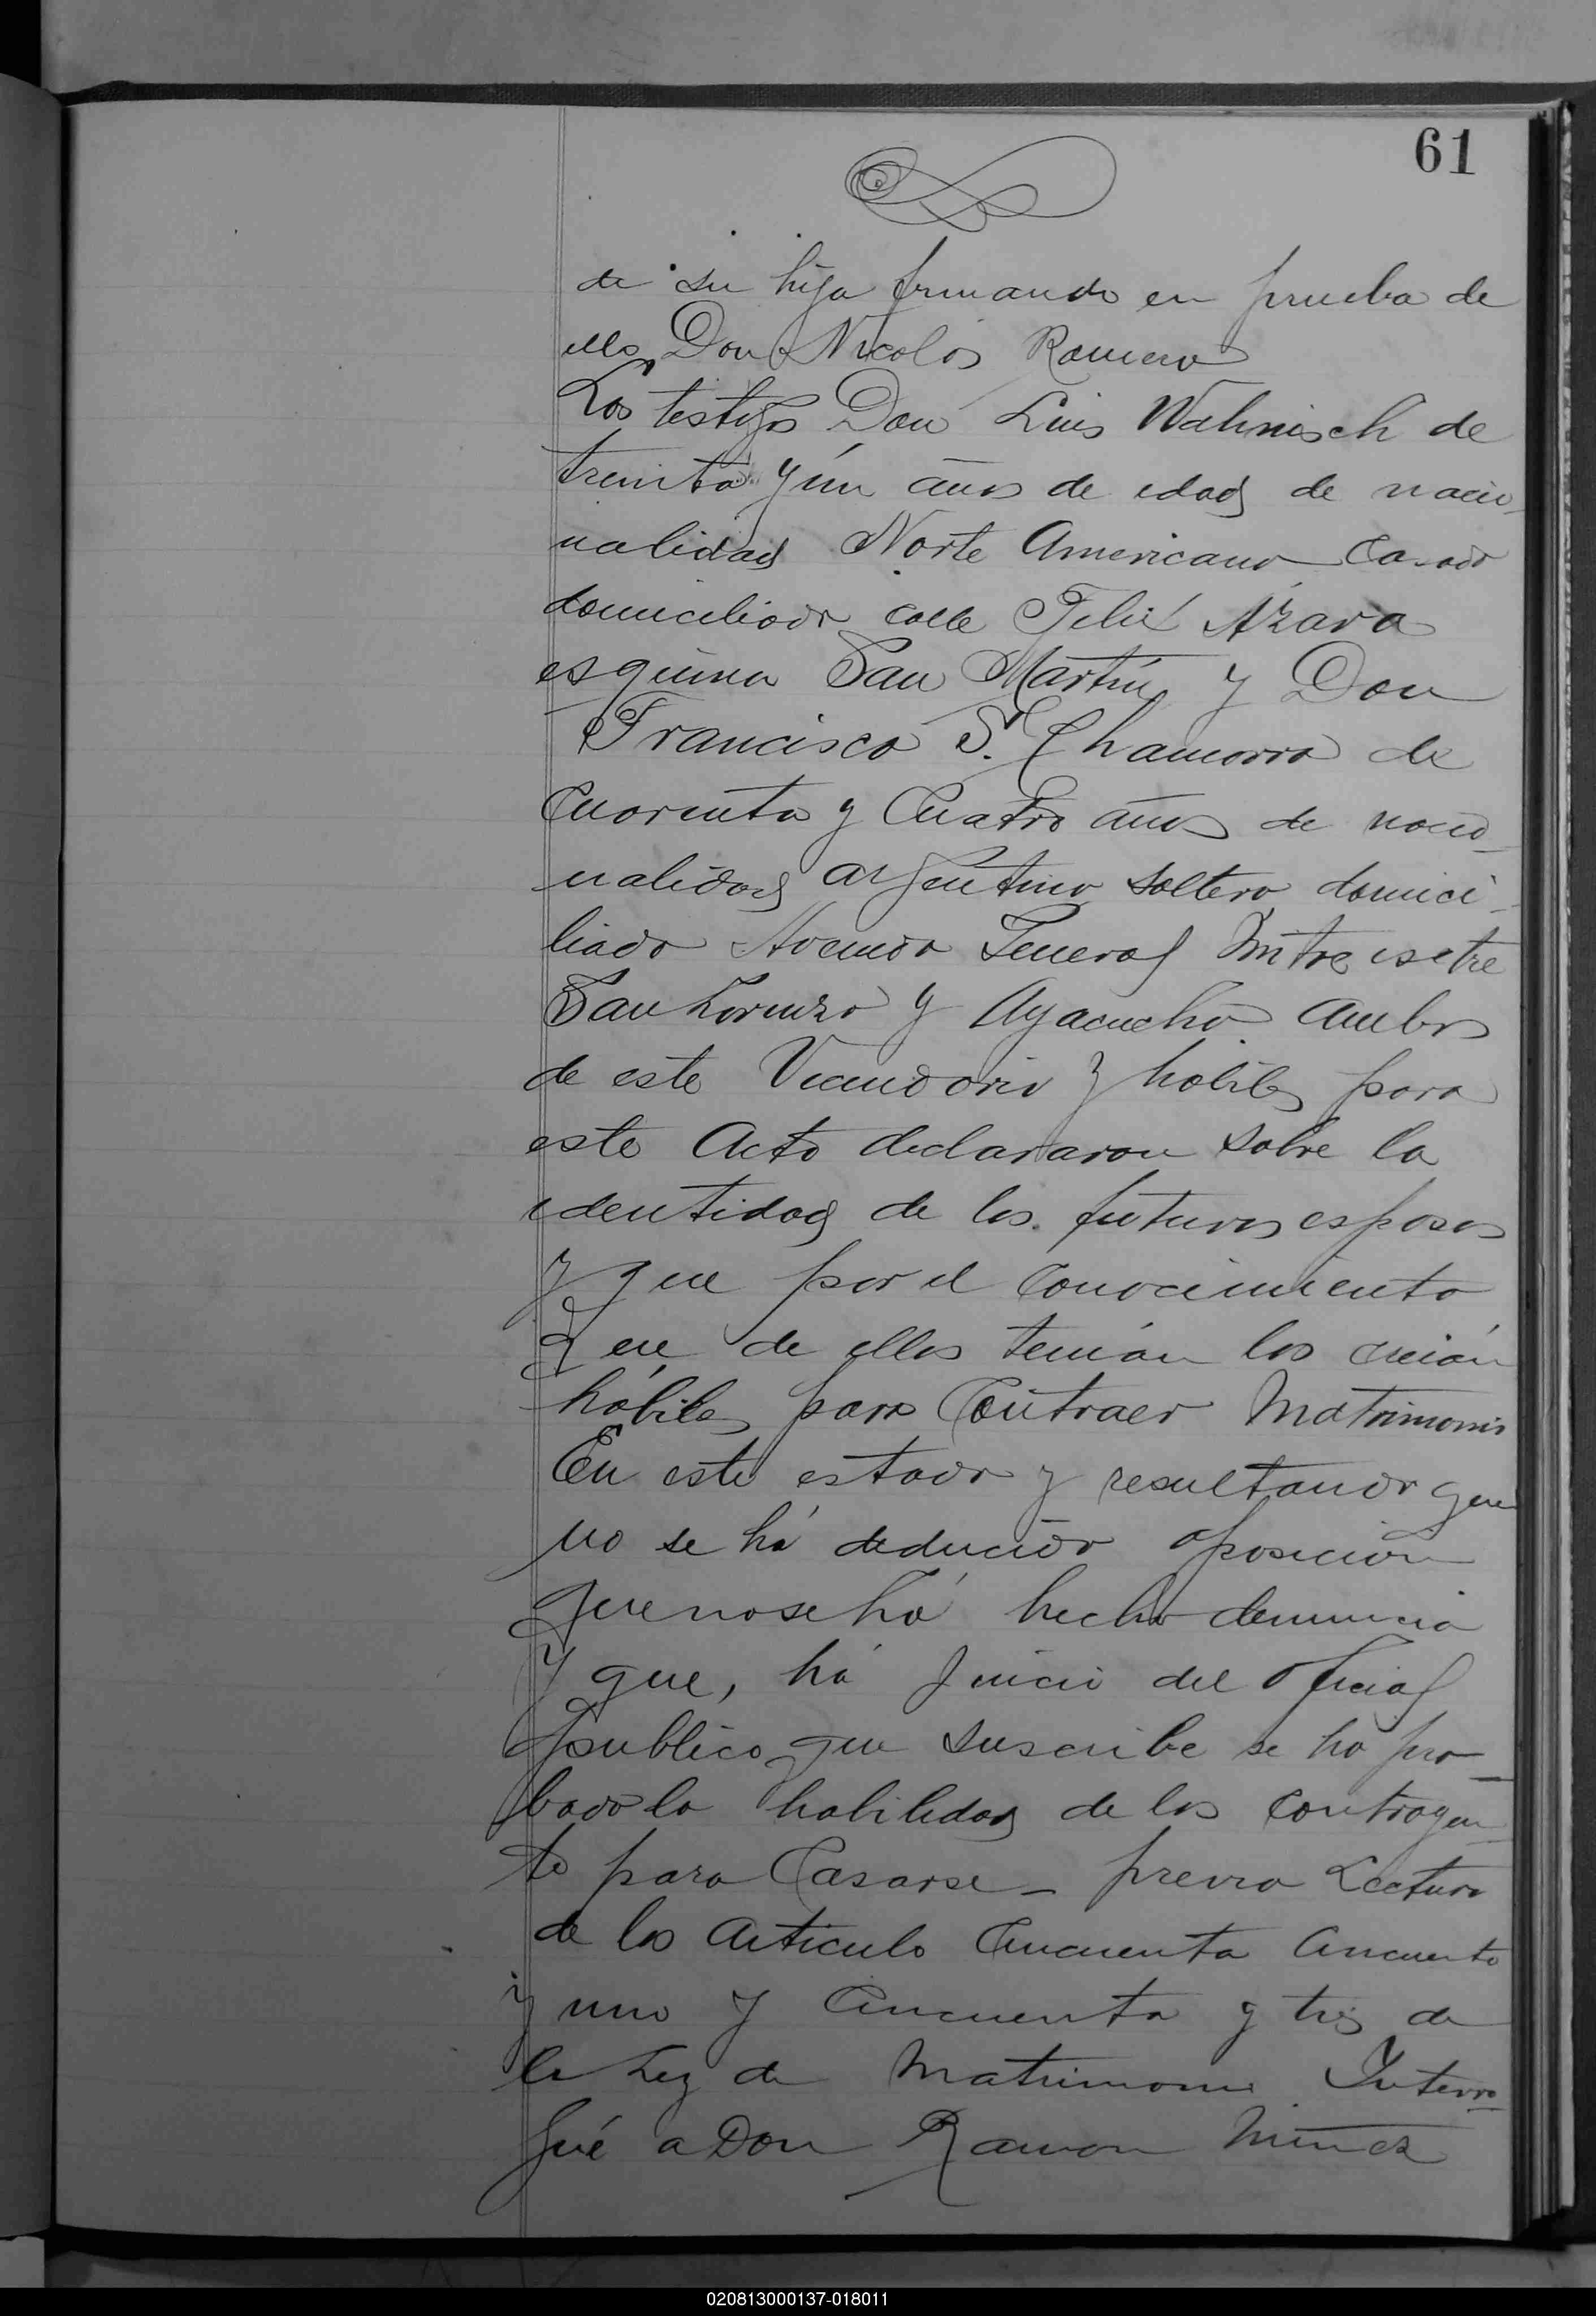 61
de su hija firmando en prueba de
ello Don Nicolás Romero
Los testigos Don Luis Wahnisch de
treinta y ún años de edad de nacio_
nalidad Norte Americano Casado
domiciliado calle Felix Azara
esquina San Martín y Don
Francisco S. Chamorro de
Cuarenta y Cuatro años de nacio_
nalidad argentino soltero domici_
liado Avenida General Mitre entre
San Lorenzo y Ayacucho ambos
de este Vecindario y habiles para
este Acto declararon sobre la
identidad de los futuros esposos
y que por el Conocimiento
que de ellos tenián los creián
hábiles para Contraer Matrimonio
En este estado y resultando que
no se há deducido oposición
que no se há hecho denuncia
y que, há juicio del oficial
publico que suscribe se ha pro_
bado la habilidad de los Contrayen_
te para Casarse _ previa Lectura
de los Articulo Cincuenta Cincuenta
y uno y Cincuenta y tres de
la Ley de Matrimonio Interro_
gué a Don Ramon Nuñez
020813000137-018011